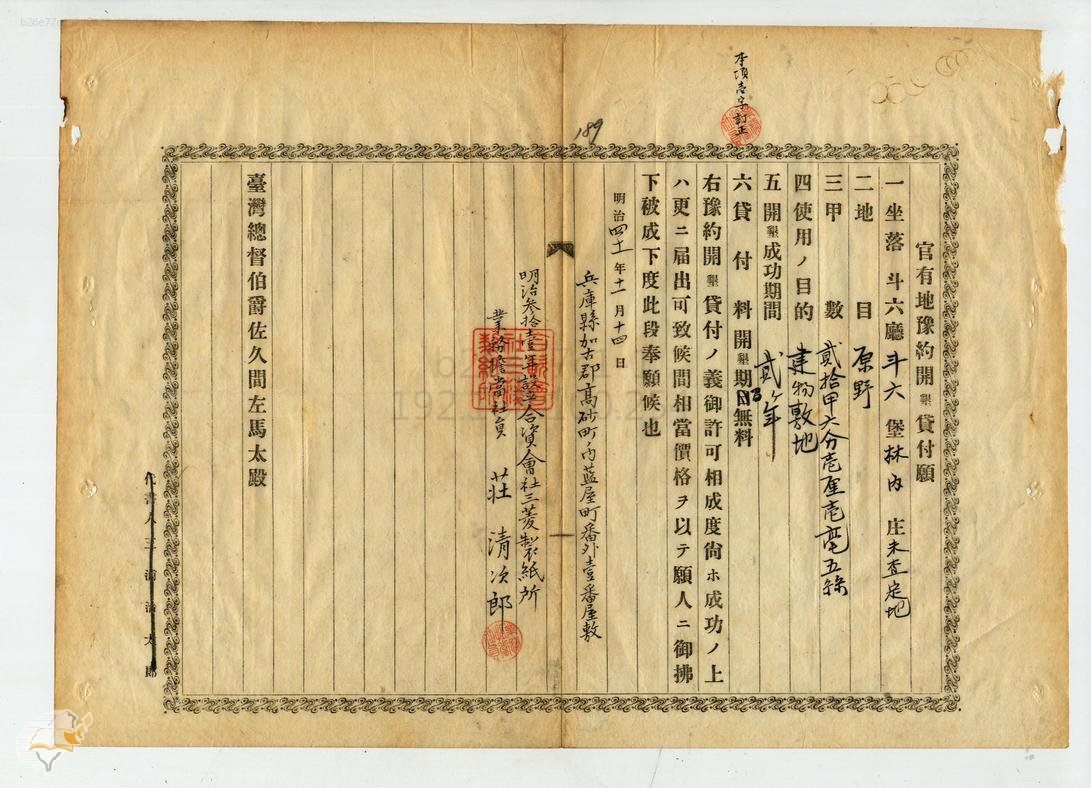 本項壱字訂正
189
官有地豫約開墾貸付願
一坐落 斗六廳斗六堡林内庄未査定地
二地目 原野
三甲數 貳拾甲六分壱厘壱毫五絲
四使用ノ目的 建物敷地
五開墾成功期間 貳ヶ年
六貸付料 開墾期間無料
右豫約開墾貸付ノ義御許可相成度尚ホ成功ノ上
ハ更ニ届出可致候間相當價格ヲ以テ願人ニ御拂
下被成下度此段奉願候也
明治四十一年十一月十四日
兵庫縣加古郡高砂町內藍屋町番外壹番屋敷
明治參拾壹年設立合資會社三菱製紙所
業務擔當社員 荘清次郎
臺灣總督伯爵佐久間左馬太殿
代書人三浦 太郎